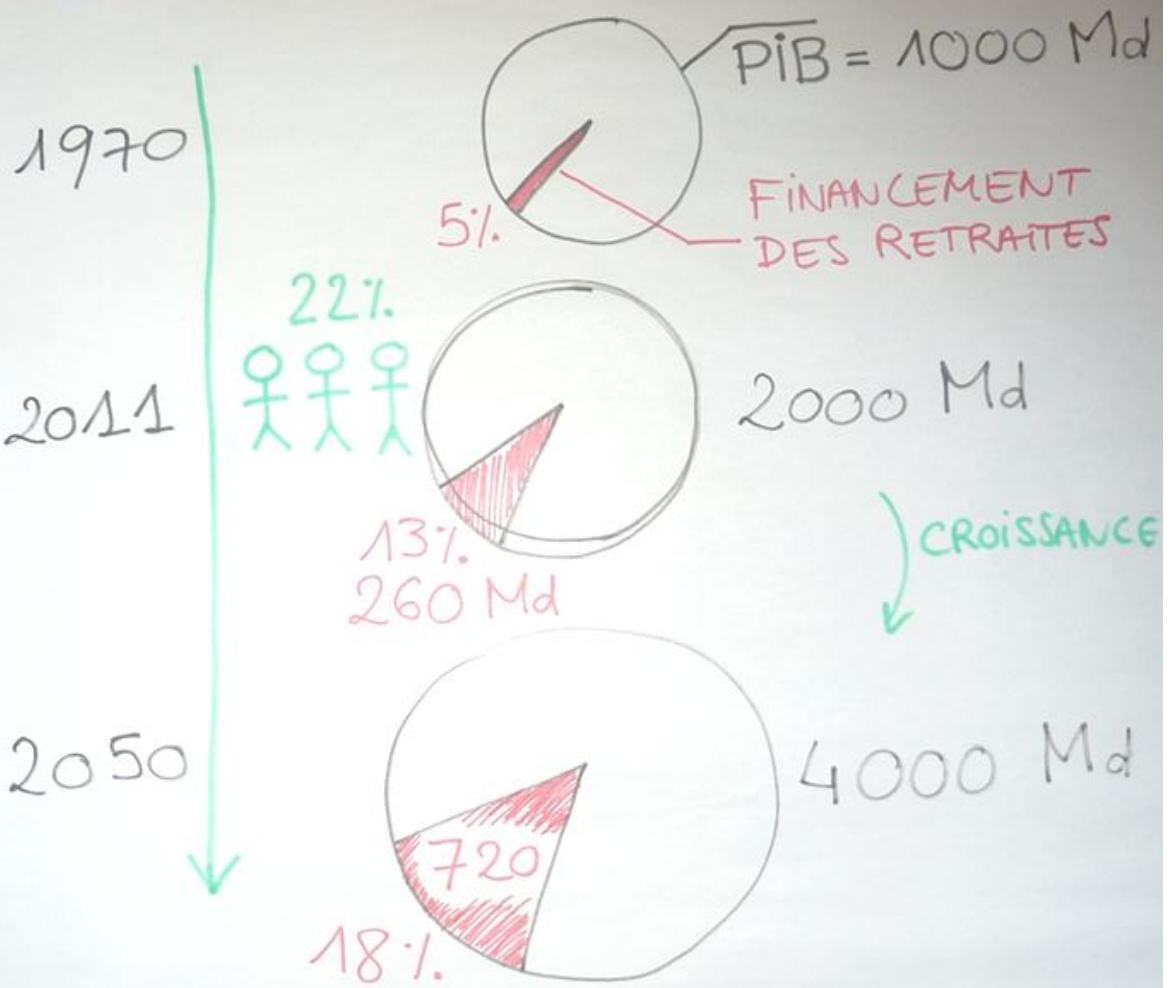 PiB = 1000 Md
1970
FiNANCEMENT
DES RETRAiTES
5%
22%
2011
2000 Md
13%
260 Md
CROiSSANCE
2050
4000 Md
720
18%